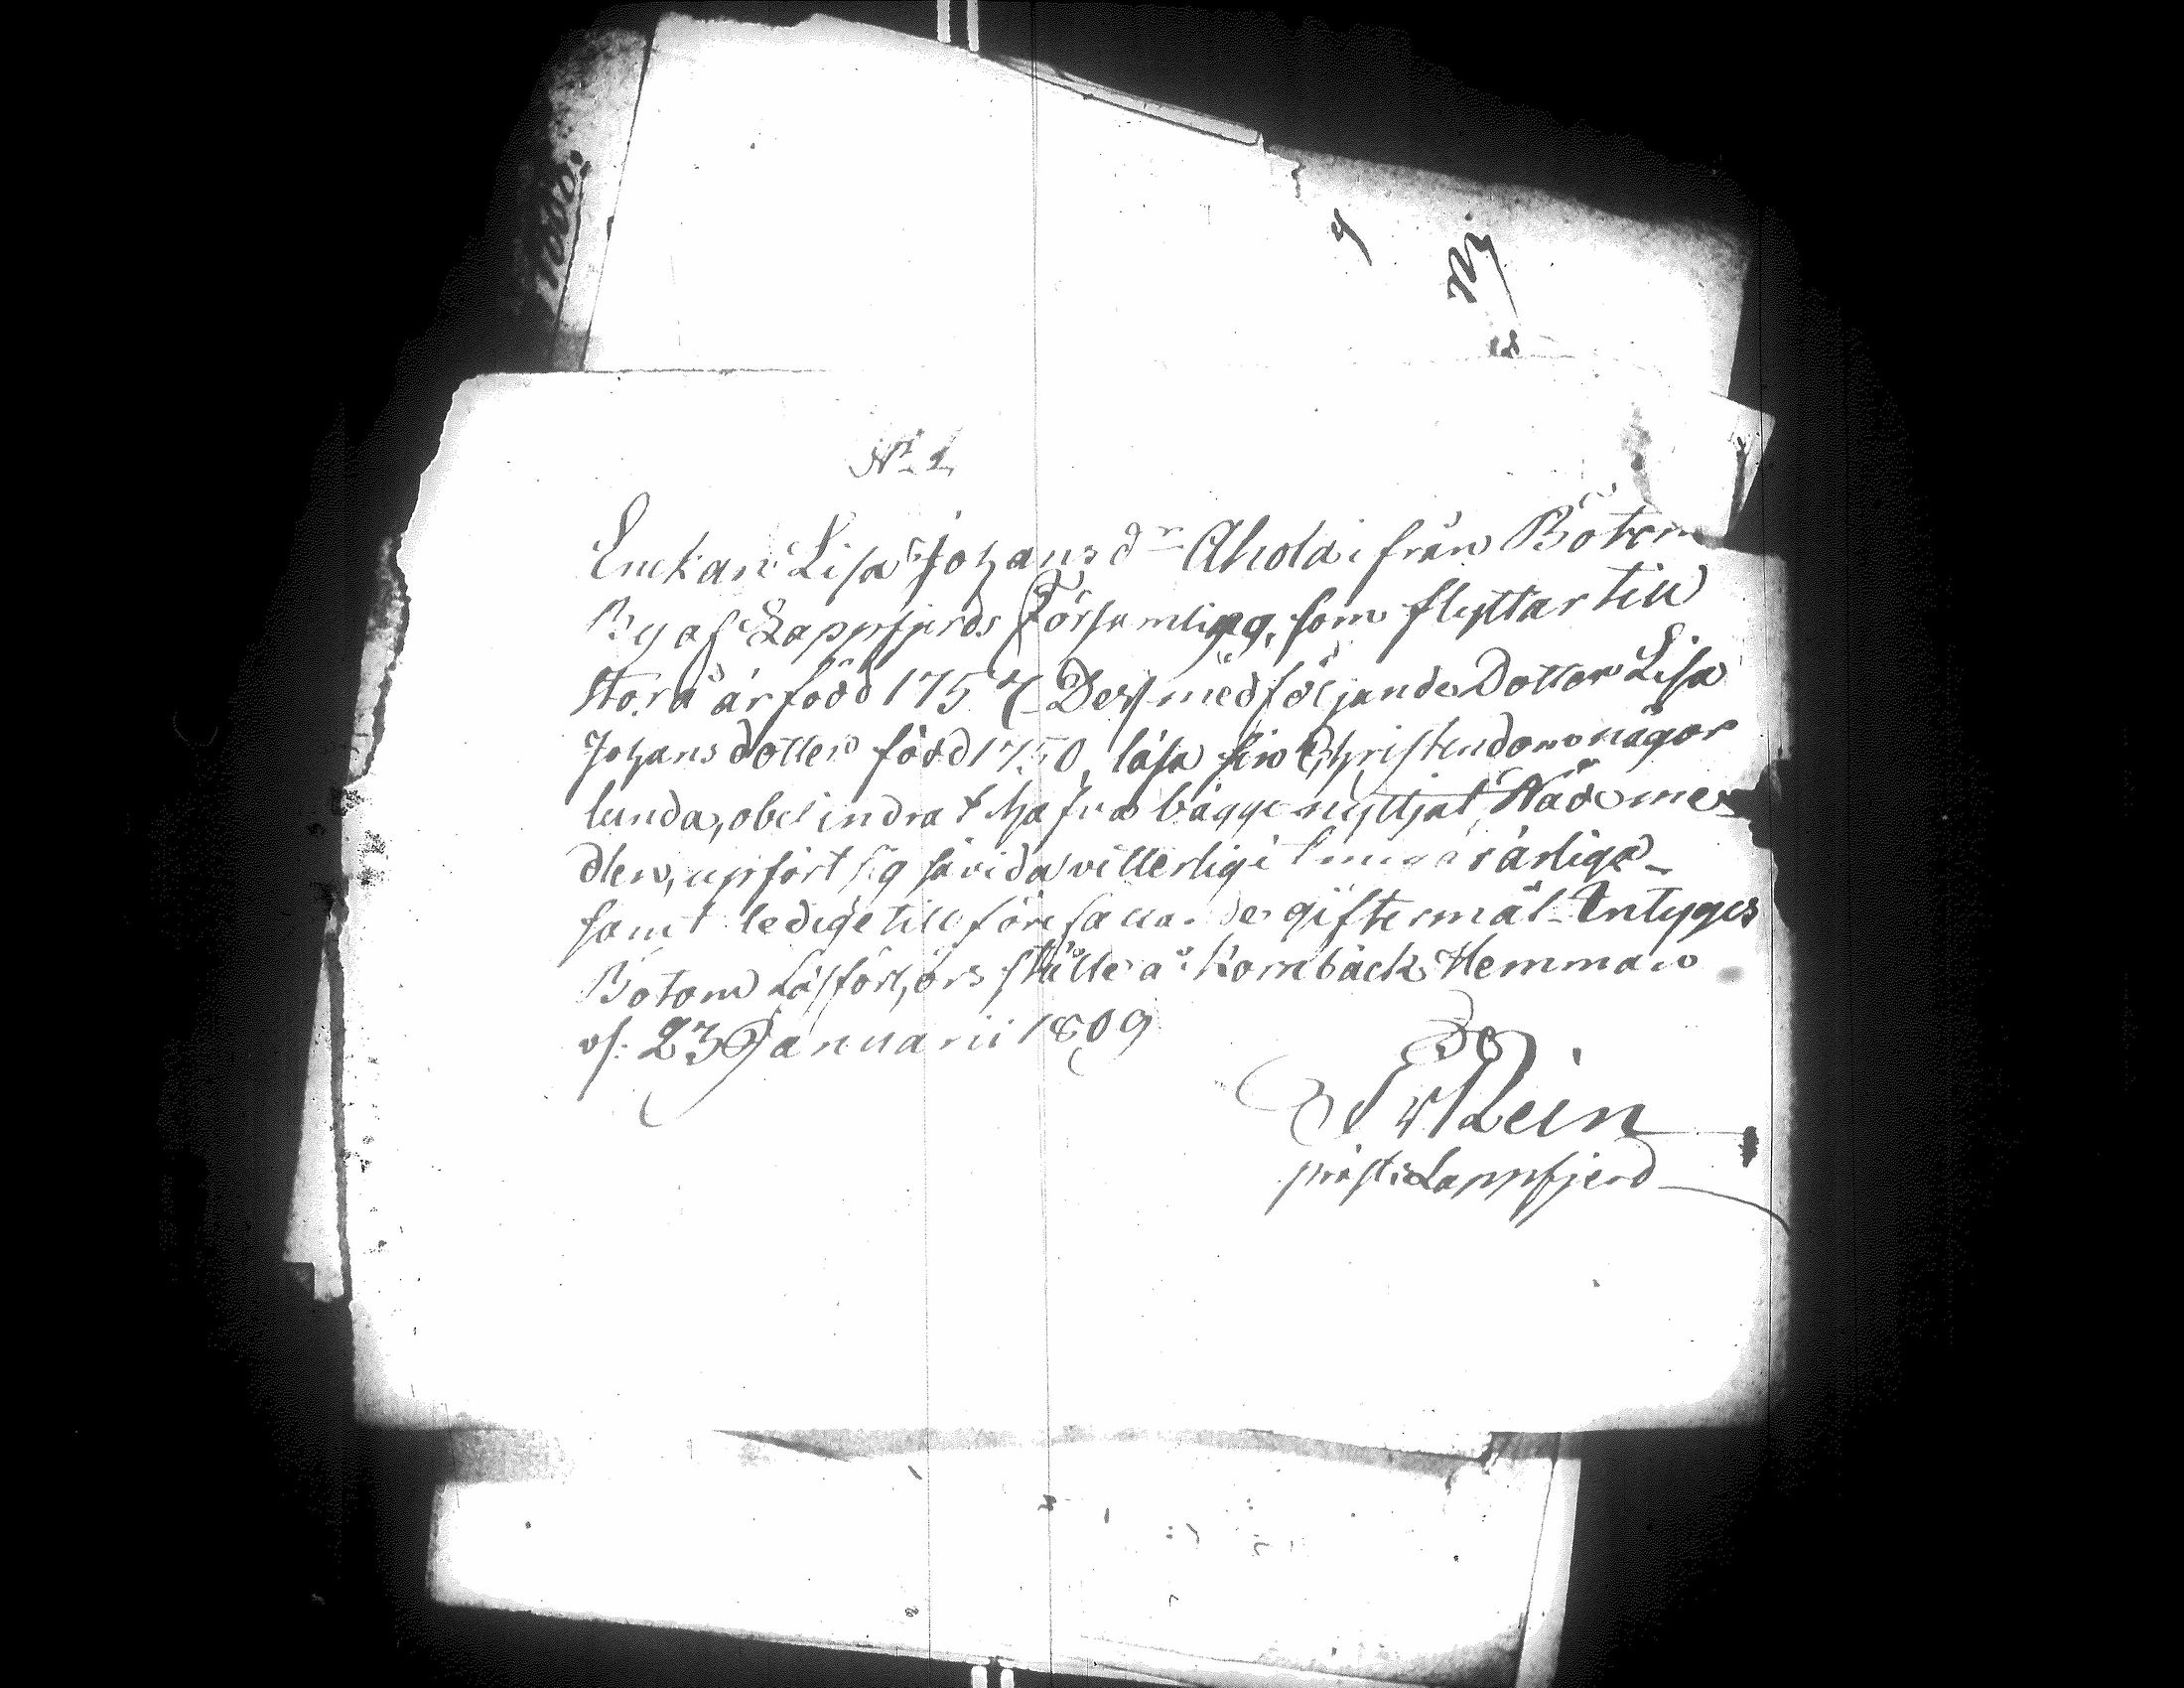 No 1
Enckan Lisa Johans dr Ahola ifrån Bötom
By af Lappfjerds Församling, som flyttar till
Storå är född 1757 Des medföljande Dotter Lisa
Johans dotter född 1750, läsa sin Christendom någor
lunda, obehindrat hafva bägge nyttjat Nådeme
dlen, upfört sig såvida vitterligit ärliga
samt ledige till förefallande giftermål Intyges
Botom Läsförhörs ställe å Kornbäck Hemman
d. 23 Januarii 1809
Rein
präst i Lappfjerd